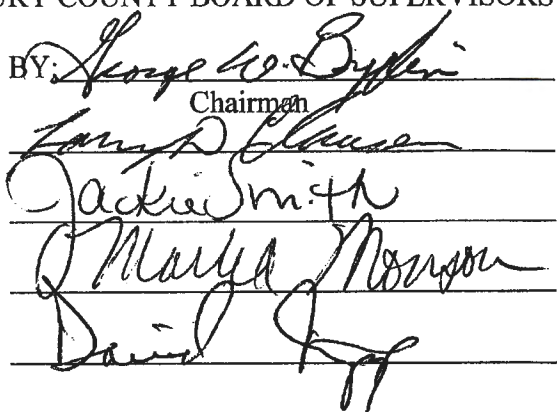 URY COUNTY BOARD OF SUPERVISORS
BY: George W. 
Chairman
Larry D Clausen
Jackie Smith
Mark Monson
David